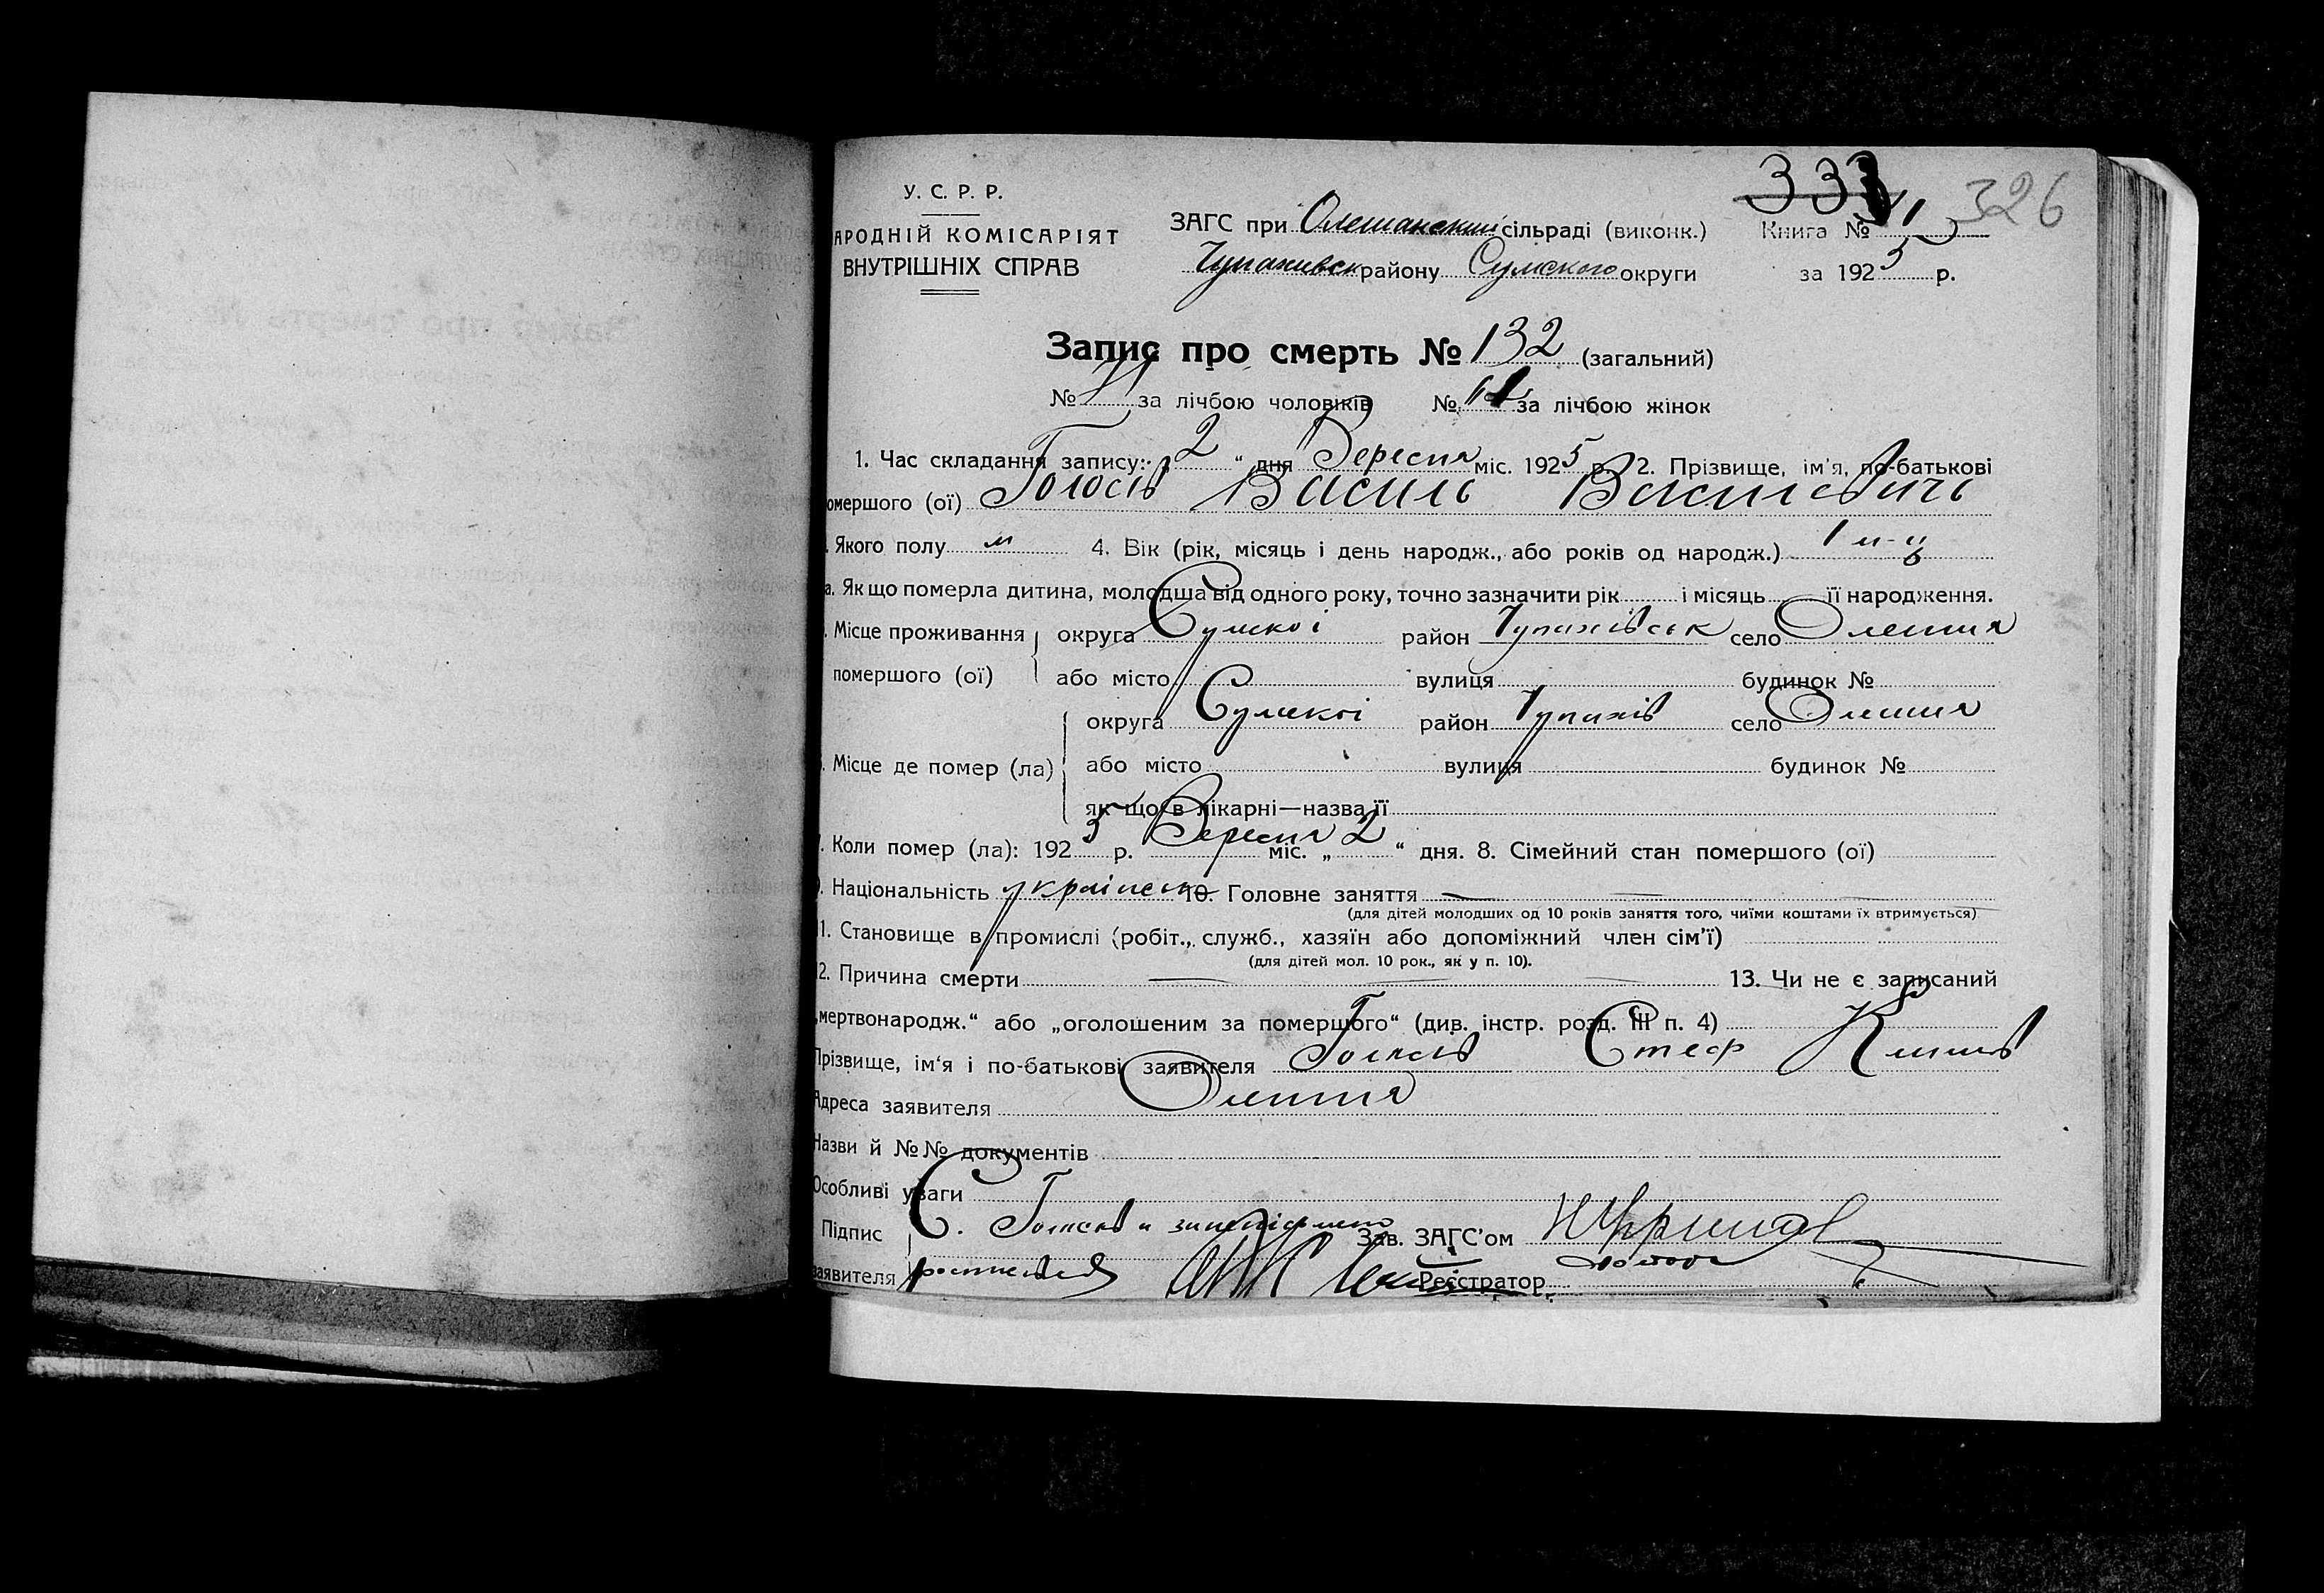 333 326
У. С. Р. Р.
АРОДНІЙ КОМІСАРІЯТ
ВНУТРІШНІХ СПРАВ
ЗАГС при Олешанский сільраді (виконк.) Книга №
Чупахивск району Сумского округи за 1925 р.
Запис про смерть № 132 (загальний)
№ за лічбою чоловіків № за лічбою жінок
1. Час складання запису: „ 2 “ дня Вересня міс. 1925 р. 2. Прізвище, ім'я, по-батькові
омершого (ої) Голосів Василь Василевичь
. Якого полу м 4. Вік (рік, місяць і день народж., або років од народж.) 1 м-ц
а. Як що померла дитина, молодша від одного року, точно зазначити рік і місяць її народження.
. Місце проживання округа Сумскоі район Чупахівськ село Олешня
помершого (ої) або місто вулиця будинок №
округа Сумскоі район Чупахів село Олешня
. Місце де помер (ла) або місто вулиця будинок №
як що в лікарні—назва її
. Коли помер (ла): 1925 р. Вересня міс. „ 2 “ дня. 8. Сімейний стан помершого (ої)
. Національність 10. Головне заняття —
(для дітей молодших од 10 років заняття того, чиїми коштами їх втримується)
1. Становище в промислі (робіт., служб., хазяїн або допоміжний член сім'ї)
(для дітей мол. 10 рок., як у п. 10).
2. Причина смерти — 13. Чи не є записаний
„мертвонародж.“ або „оголошеним за помершого“ (див. інстр. розд. III п. 4)
Прізвище, ім'я і по-батькові заявителя Голосів Стеф
Адреса заявителя Олешня
Назви й №№ документів
Особливі уваги
Підпис С. Голосів Зав. ЗАГС'ом
заявителя Реєстратор